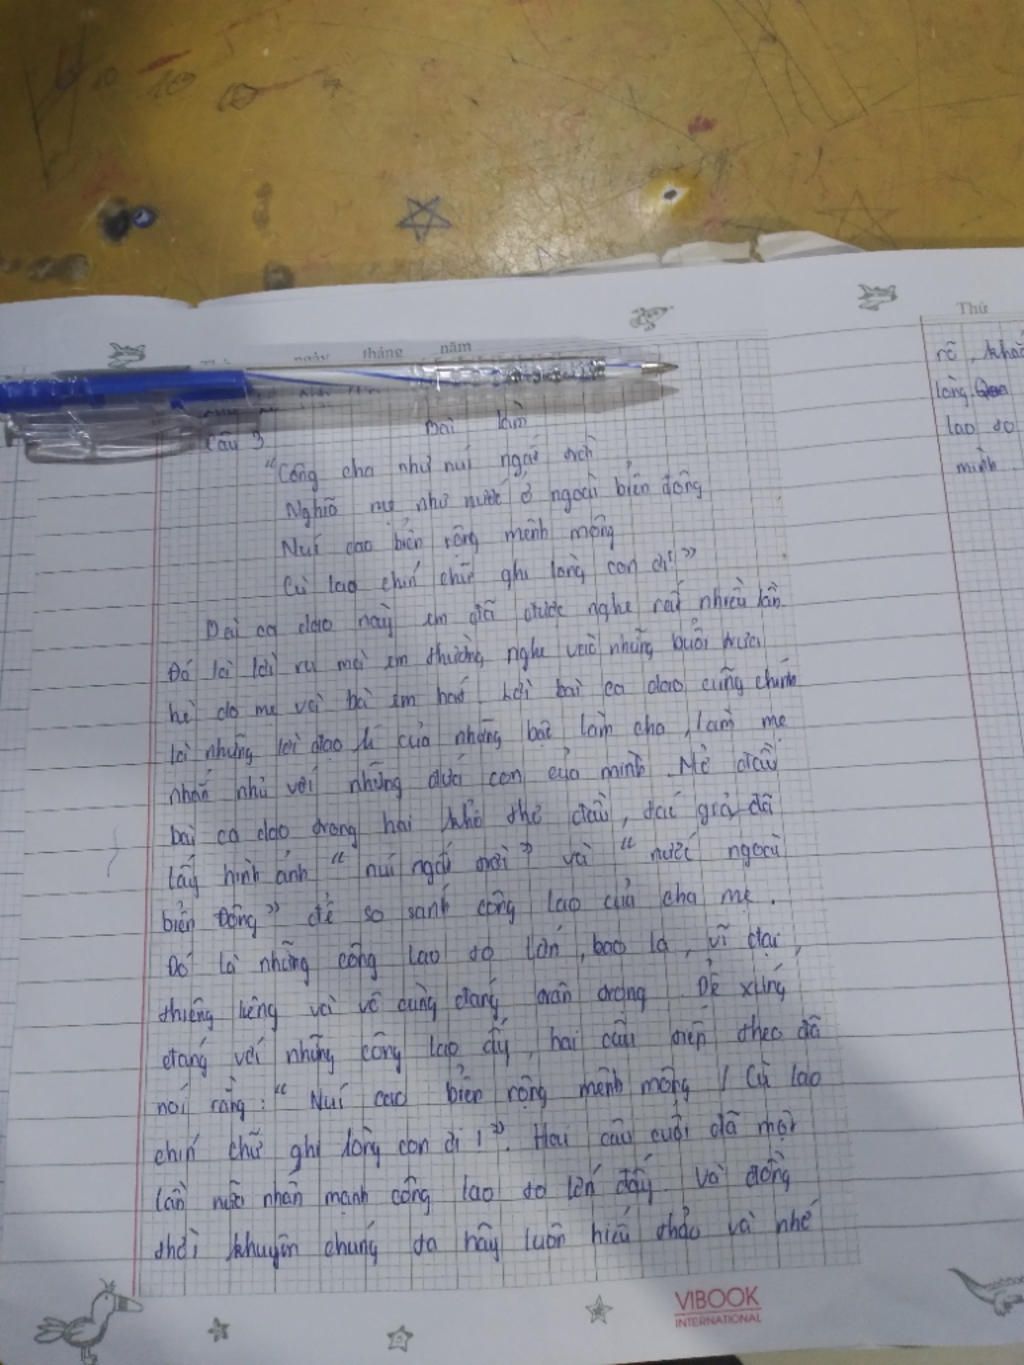 ngày tháng năm
Câu 3 Bài làm
"Công cha như núi ngất trời
Nghĩa mẹ như nước ở ngoài biển đông
Núi cao biển rộng mênh mông
Cù lao chín chữ ghi lòng con ơi!"
Bài ca dao này em đã được nghe rất nhiều lần.
Đó là lời ru mà em thường nghe vào những buổi trưa
hè do mẹ và bà em hát. Lời bài ca dao cũng chính
là những lời đạo lí của những bậc làm cha, làm mẹ
nhắn nhủ với những đứa con của mình. Mở đầu
bài ca dao trong hai khổ thơ đầu, tác giả đã
lấy hình ảnh "núi ngất trời" và "nước ngoài
biển Đông" để so sánh công lao của cha mẹ.
Đó là những công lao to lớn, bao la, vĩ đại,
thiêng liêng và vô cùng đáng trân trọng. Để xứng
đáng với những công lao ấy, hai câu tiếp theo đã
nói rằng: "Núi cao biển rộng mênh mông / Cù lao
chín chữ ghi lòng con ơi!". Hai câu cuối đã một
lần nữa nhấn mạnh công lao to lớn đấy và đồng
thời khuyên chúng ta hãy luôn hiếu thảo và nhớ
VIBOOK
INTERNATIONAL
Thứ
lòng.
lao to
mình